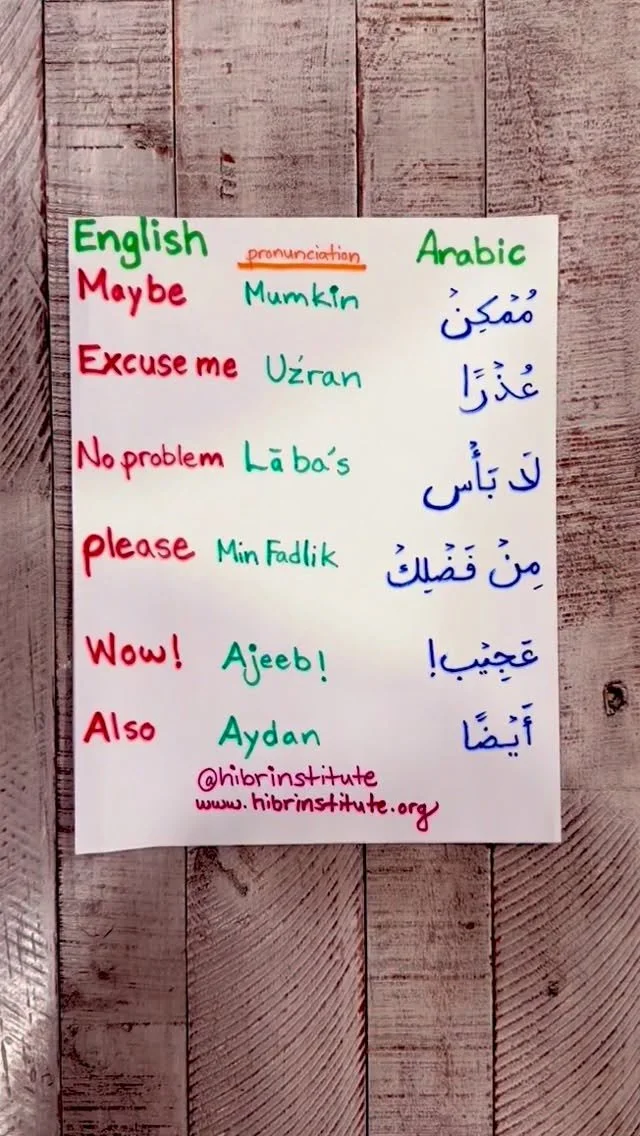 English pronunciation Arabic
Maybe Mumkin مُمْكِنْ
Excuse me Uźran عُذْرًا
No problem Lā ba's لَا بَأْس
please Min Fadlik مِنْ فَضْلِكْ
Wow! Ajeeb! عَجِيْب!
Also Aydan أَيْضًا
@hibrinstitute
www.hibrinstitute.org